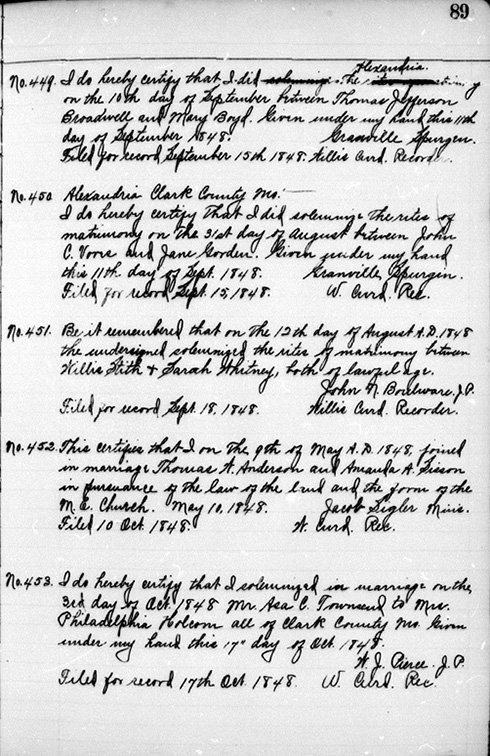 89
Alexandria.
No. 449. I do hereby certify that I did solemnize the rites of matrimony
on the 10th day of September between Thomas Jefferson
Broadwell and Mary Boyd. Given under my hand this 11th
day of September 1848. Granville Spurgen.
Filed for record September 15th 1848. Willis Curd. Recorder.
No. 450 Alexandria Clark County Mo.
I do hereby certify that I did solemnize the rites of
matrimony on the 31st day of August between John
C. Voors and Jane Gorden. Given under my hand
this 11th day of Sept. 1848. Granville Spurgin.
Filed for record Sept. 15, 1848. W. Curd. Rec.
No. 451. Be it remembered that on the 12th day of August A.D. 1848
the undersigned solemnized the rites of matrimony between
Willis Stith & Sarah Whitney, both of lawful age.
John N. Boulware, J.P.
Filed for record Sept. 18, 1848. Willis Curd. Recorder.
No. 452. This certifies that I on the 9th of May A.D. 1848, joined
in marriage Thomas W. Anderson and Amanda A. Sisson
in pursuance of the law of the land and the form of the
M.E. Church. May 10, 1848. Jacob Sigler Minis.
Filed 10 Oct. 1848. W. Curd. Rec.
No. 453. I do hereby certify that I solemnized in marriage on the
3rd day of Oct. 1848 Mr. Asa C. Townsend to Mrs.
Philadelphia Holcom all of Clark County Mo. Given
under my hand this 17" day of Oct. 1848.
W. J. Pierce. J.P.
Filed for record 17th Oct. 1848. W. Curd. Rec.